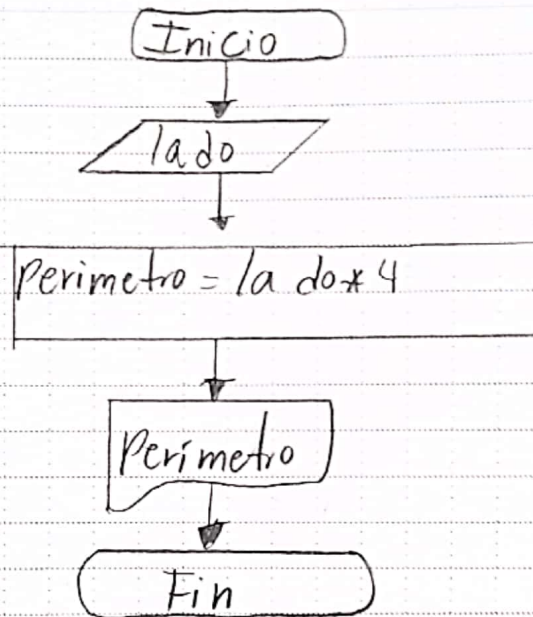 Inicio
lado
Perimetro = lado * 4
Perimetro
Fin